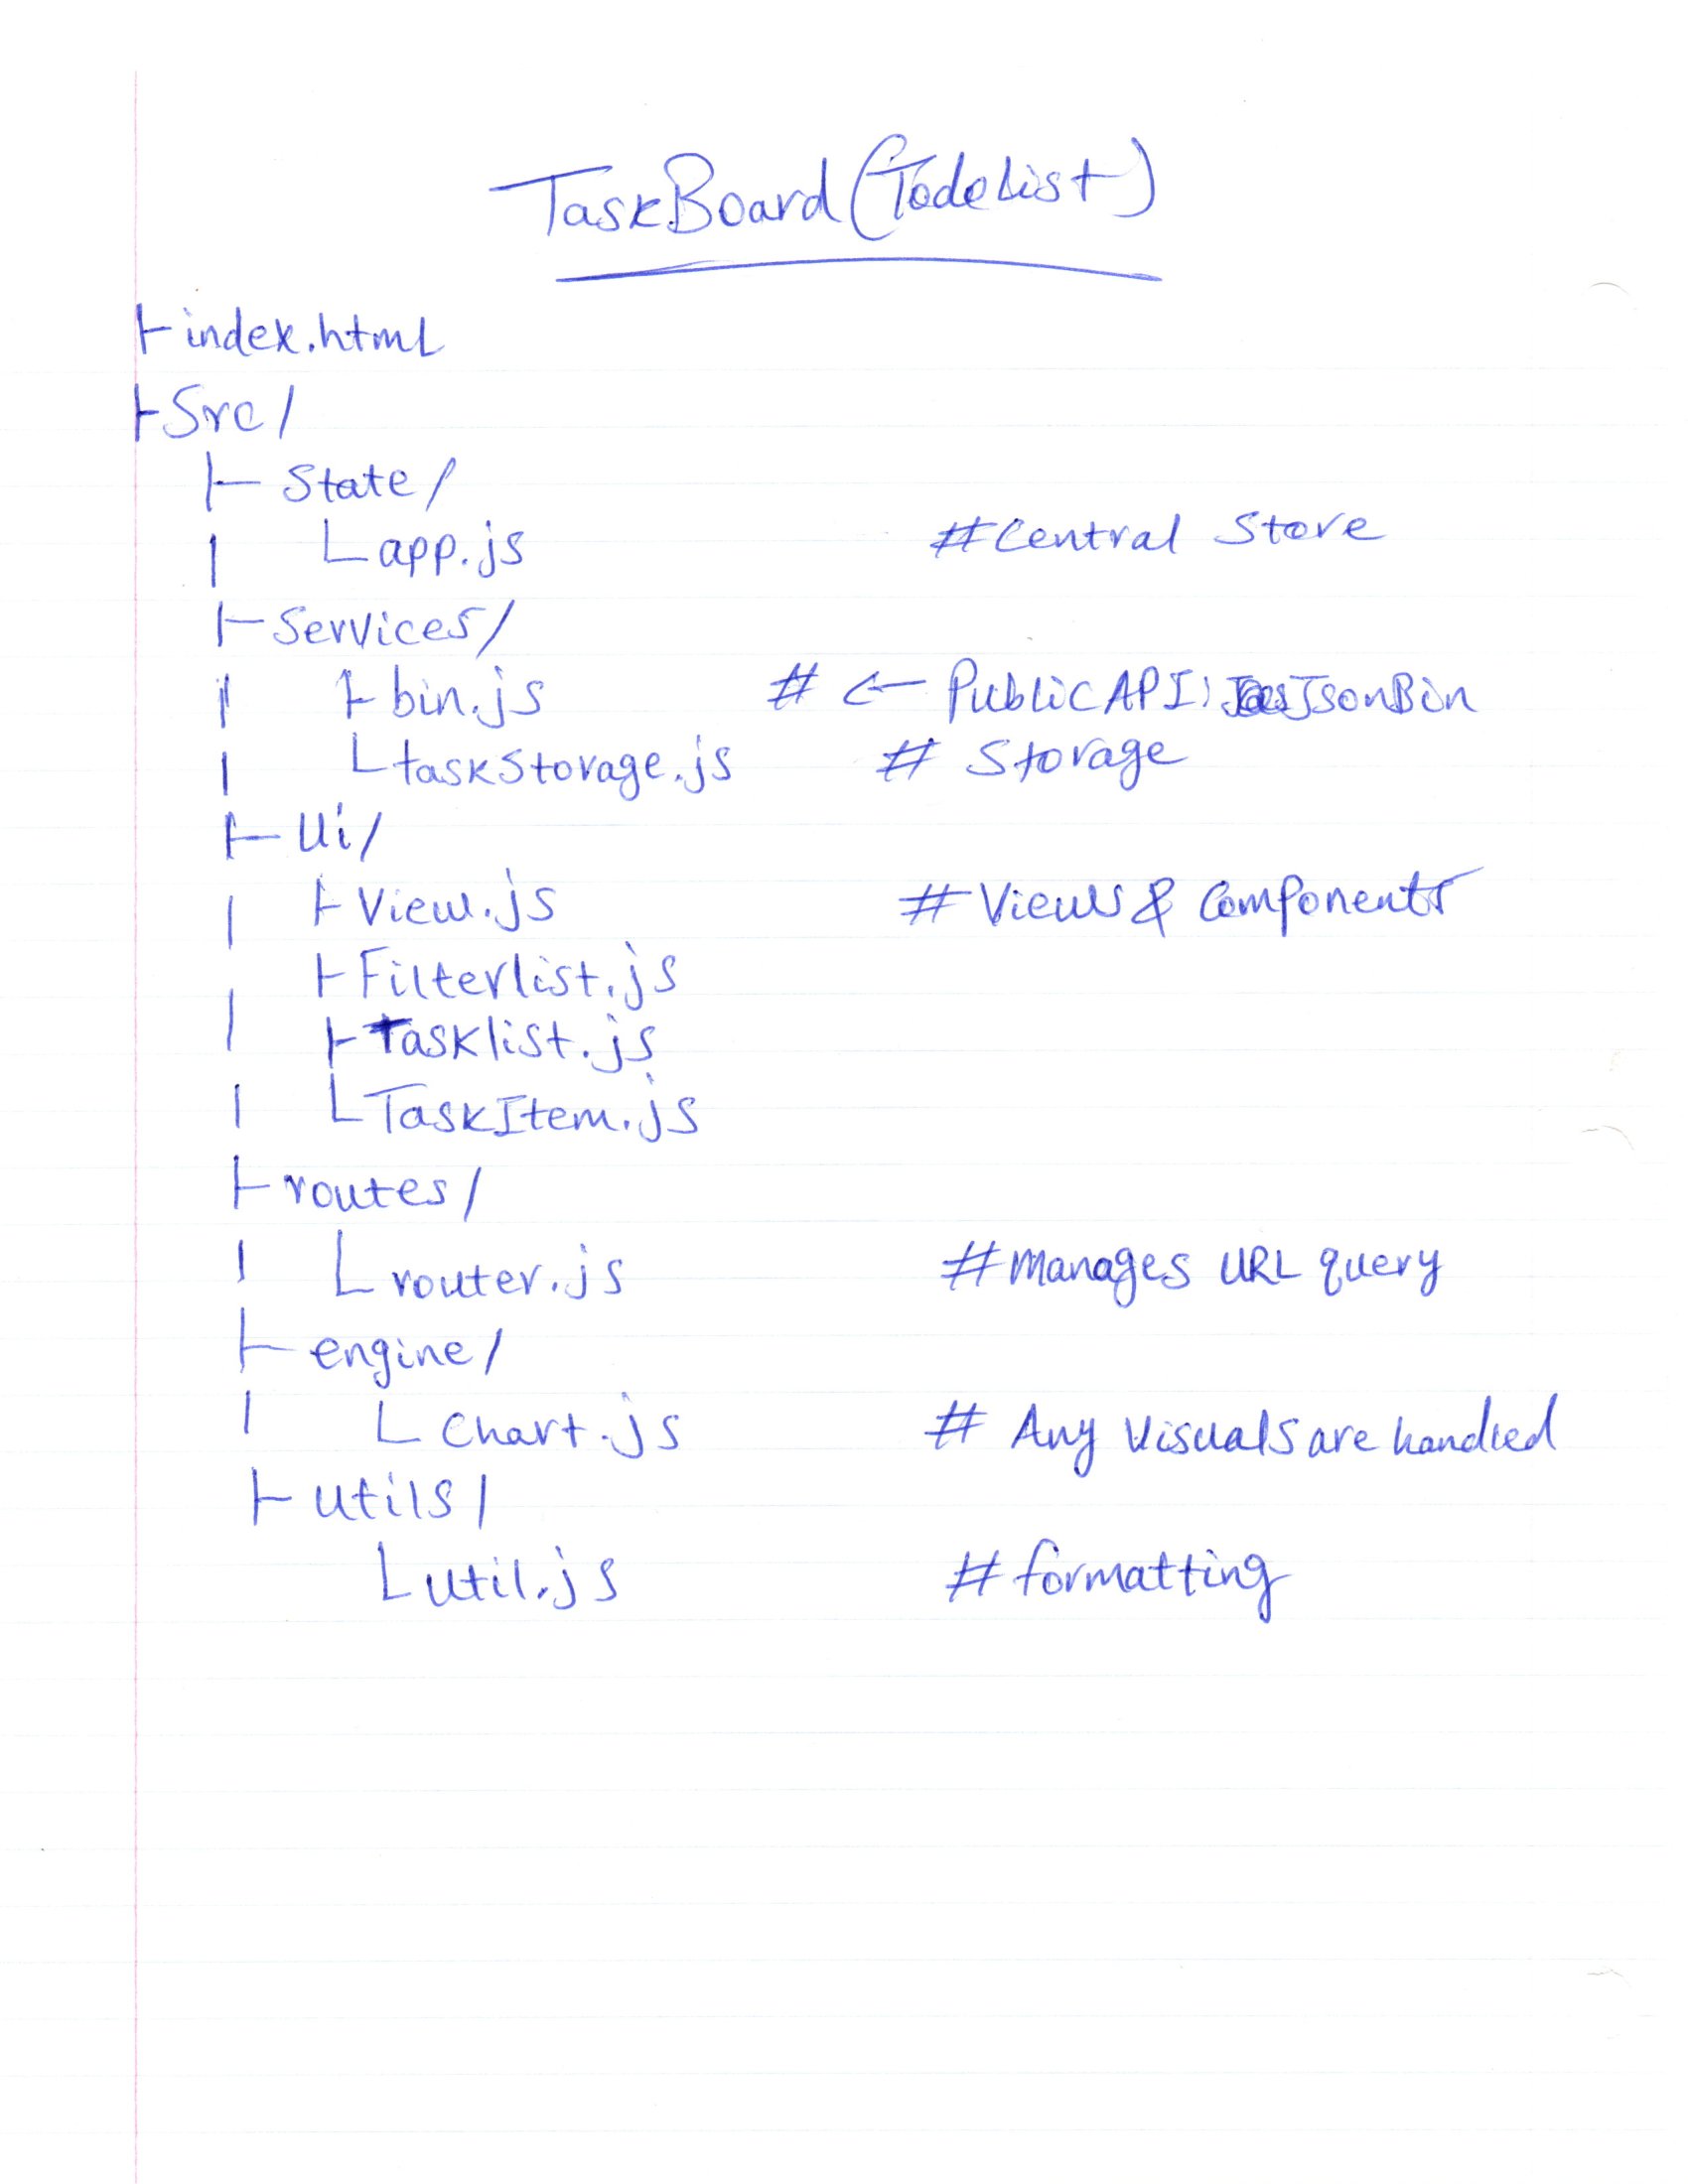 TaskBoard (Todo List)
├ index.html
├ Src/
├─ State/
| └ app.js #Central Store
├─ Services/
| ├ bin.js # <— Public API: JsonBin
| └ taskStorage.js # Storage
├─ Ui/
| ├ View.js # Views & Components
├ Filterlist.js
| ├ Tasklist.js
| └ TaskItem.js
├─ routes/
| └ router.js #Manages URL query
├─ engine/
| └ Chart.js # Any Visuals are handled
├─ utils/
└ util.js #formatting